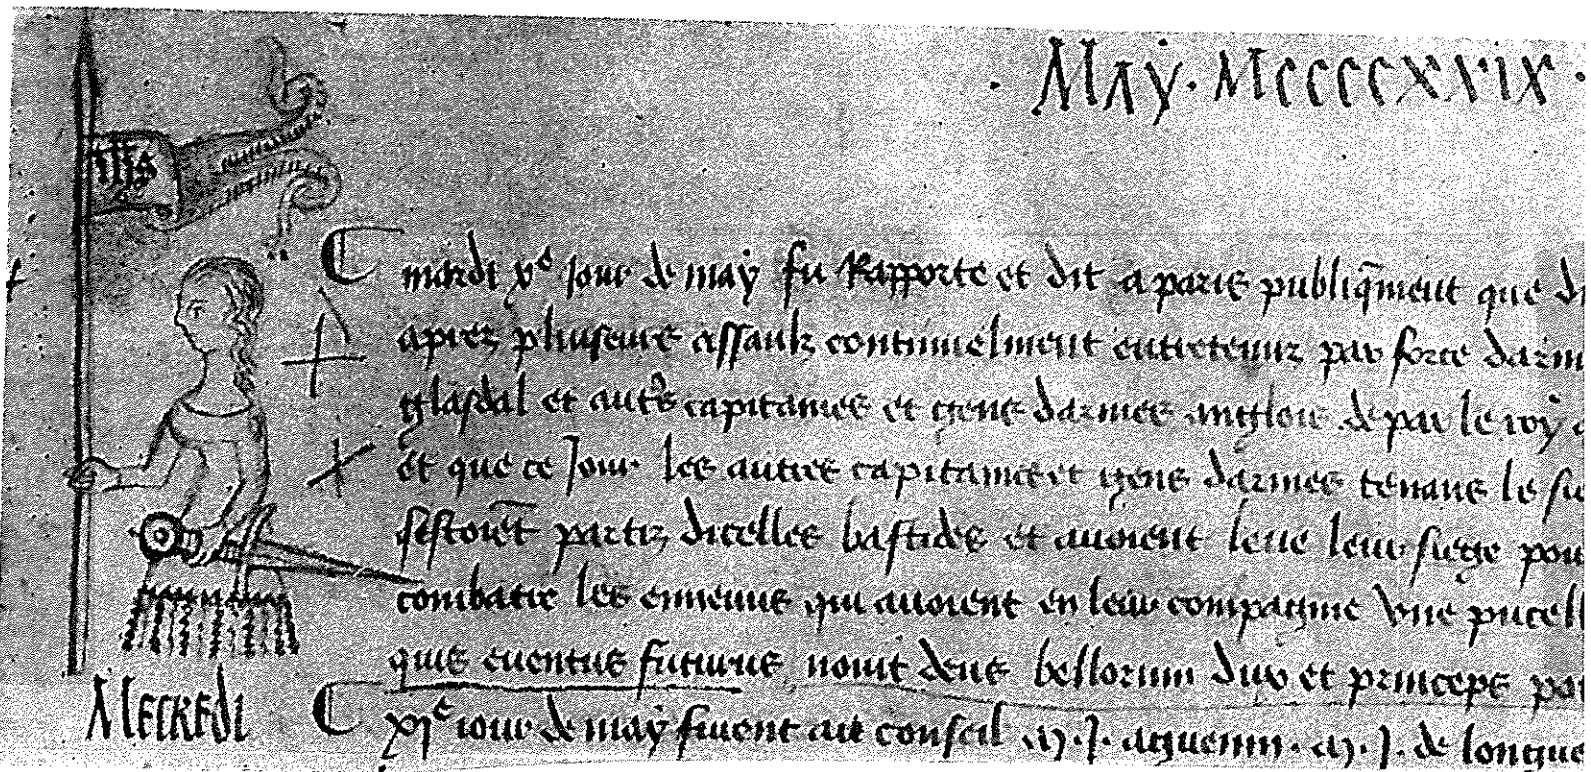 . MAY . MCCCCXXIX .
ihs
mardi xe Jour de may fu Rapporte et dit a paris publiqment que di
aprez pluseurs assaulz continuelment entretenuz par force darm
glasdal et autrs capitaines et gens darmes anglois de par le roy
et que ce Jour les autres capitaines et gens darmes tenans le si
sestoiēt partiz dicelles bastides et avoient leue leur siege pou
combatre les ennemis qui avoient en leur compagnie vne pucell
quis eventus futurus novit deus bellorum dux et princeps po
MECREDI
XIe iour de may furent au conseil m. J. aguenin . m. J. de longue